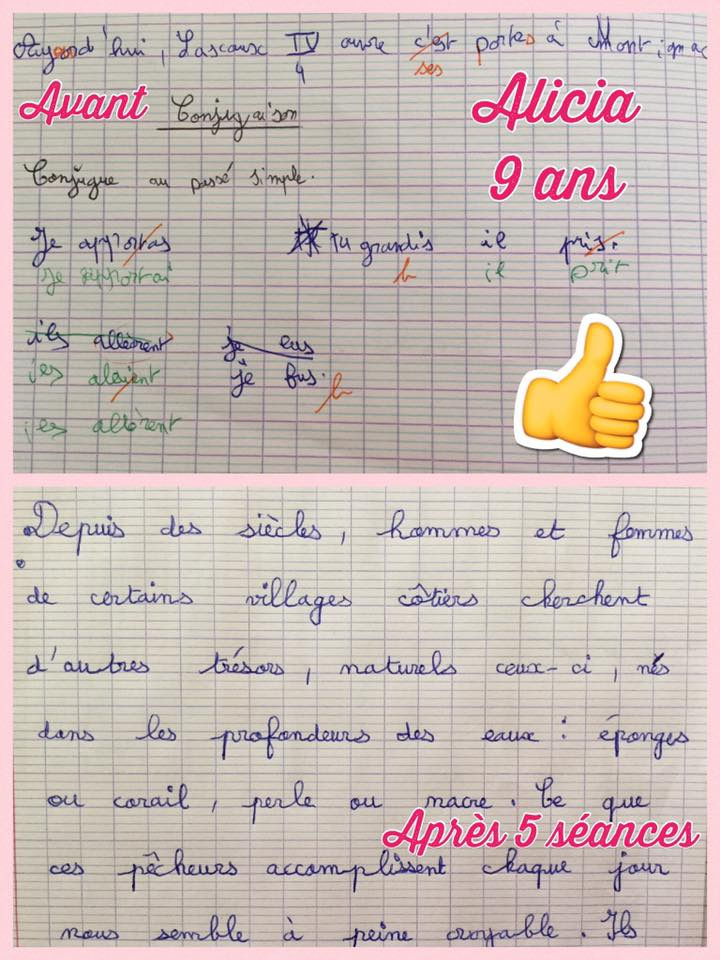 Aujourd'hui, Lascaux IV ouvre c'est portes à Montignac
ses
4
Avant
Conjugaison
Alicia
9 ans
Conjugue au passé simple.
Je apportas tu grandis il pris.
je apportai b il prit
ils allèrent je eus
ils alaient je fus. b
ils allèrent
Depuis des siècles, hommes et femmes
de certains villages côtiers cherchent
d'autres trésors, naturels ceux-ci, nés
dans les profondeurs des eaux : éponges
ou corail, perle ou nacre. Ce que
Après 5 séances
ces pêcheurs accomplissent chaque jour
nous semble à peine croyable. Ils